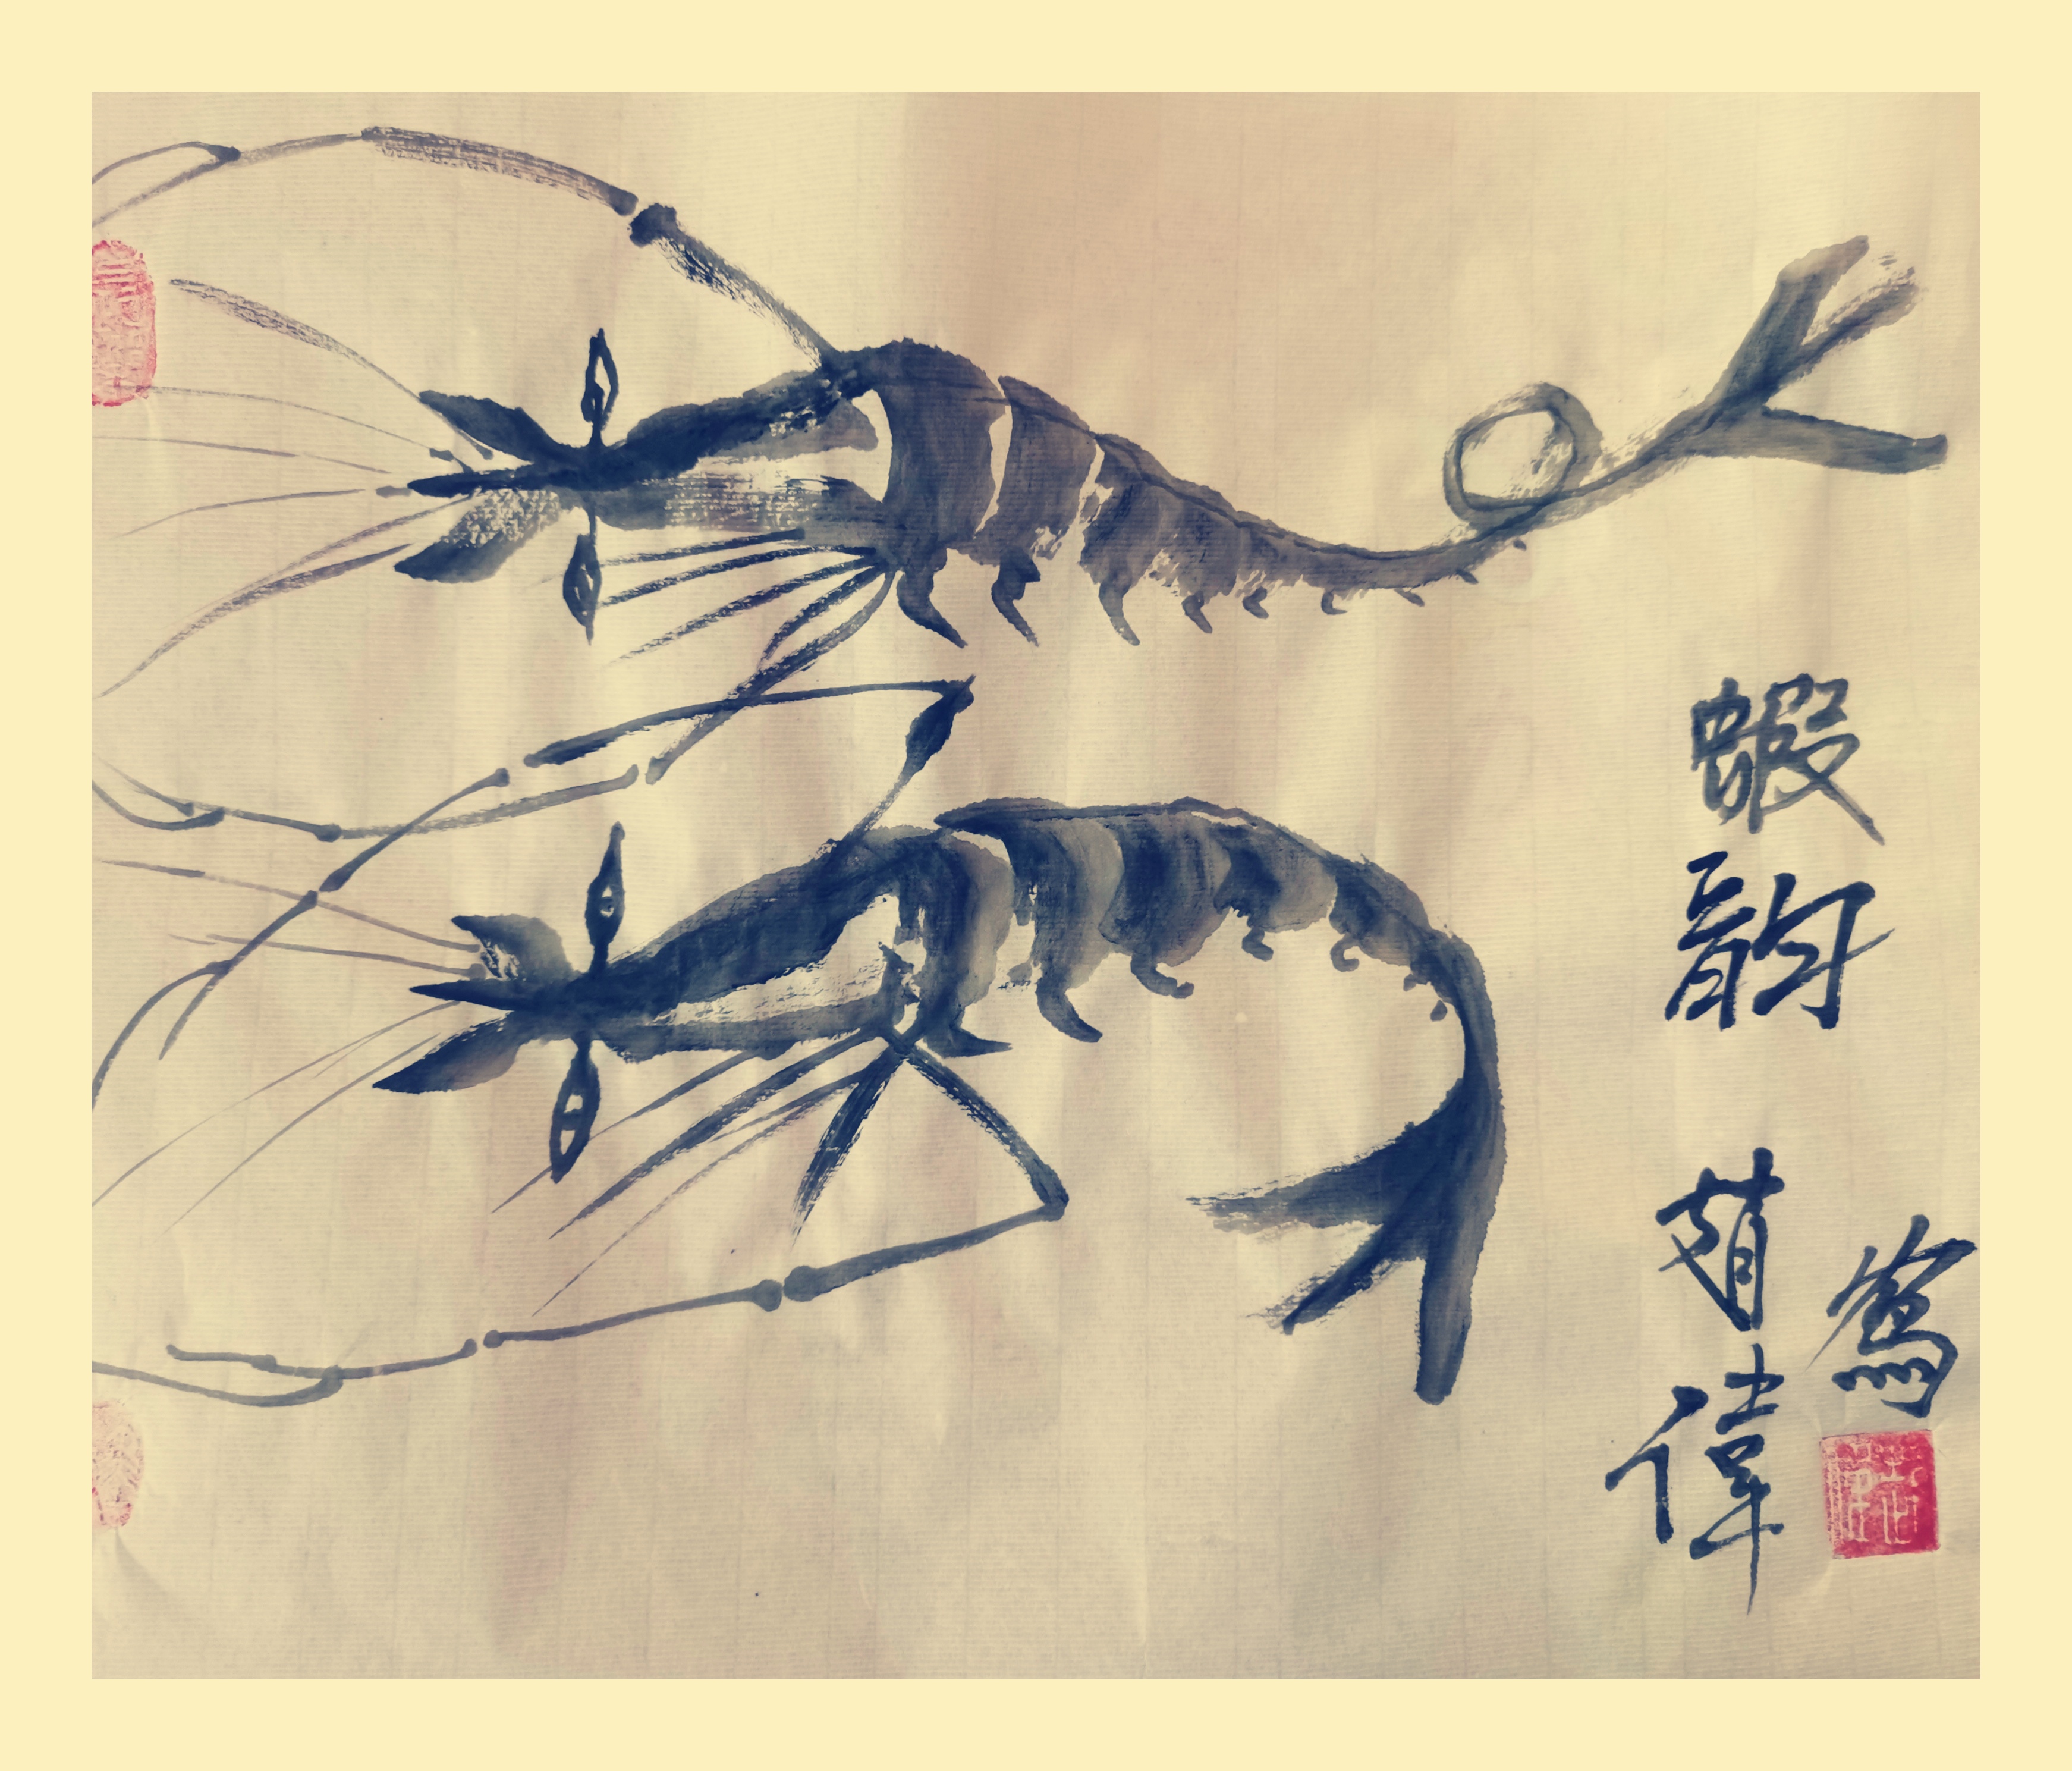 蝦韵 趙偉
寫